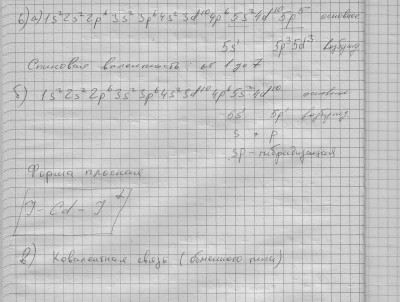 6) а) 1s² 2s² 2p⁶ 3s² 3p⁶ 4s² 3d¹⁰ 4p⁶ 5s² 4d¹⁰ 5p⁵ основное
5s¹ 5p³ 5d³ возбужд
Спиновая валентность: от 1 до 7
б) 1s² 2s² 2p⁶ 3s² 3p⁶ 4s² 3d¹⁰ 4p⁶ 5s² 4d¹⁰ основное
5s¹ 5p¹ возбужд
s + p
sp - гибридизация
Форма плоская
[J - Cd - J]
в) Ковалентная связь (обменного типа)